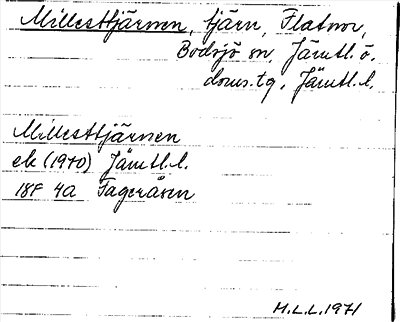 Millesttjärnen, tjärn, Flatnor,
Bodsjö sn, Jämtl. ö.
doms.tg, Jämtl. l.
Millesttjärnen
ek (1970) Jämtl. l.
18F 4a Fageråsen
M.L.L. 1971